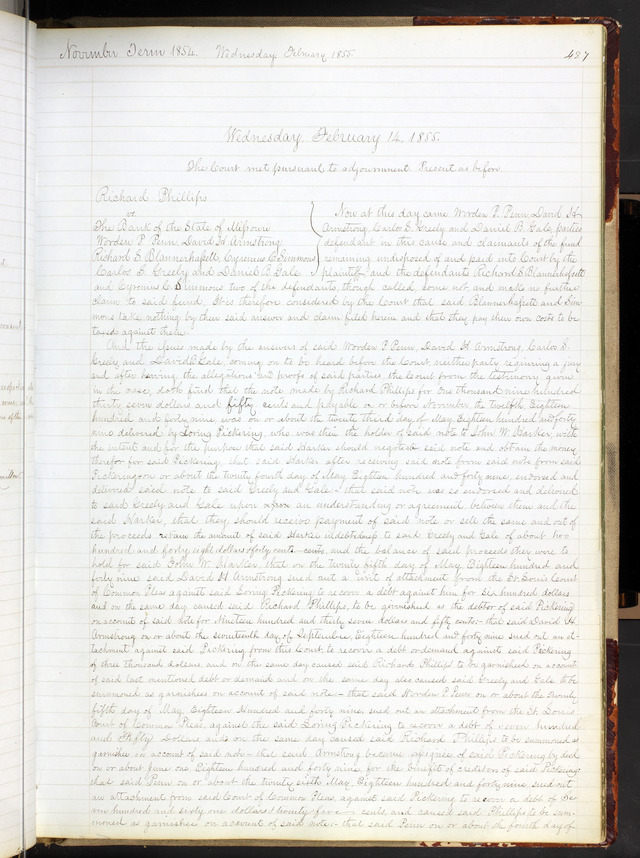 November Term 1854. Wednesday, February 1855. 487
Wednesday, February 14, 1855.
The Court met pursuant to adjournment. Present as before.
Richard Phillips
vs
The Bank of the State of Missouri
Worden P. Penn, David H. Armstrong
Richard E. Blannerhassett, Cyrenius C. Simmons
Carlos S. Greely and Daniel B. Gale
Now at this day came Worden P. Penn, David H.
Armstrong, Carlos S. Greely and Daniel B. Gale, parties
defendant in this cause and claimants of the fund
remaining undisposed of and paid into Court by the
plaintiff and the defendants Richard E. Blannerhassett
and Cyrenius C. Simmons two of the defendants, though called, come not, and make no further
claim to said fund. It is therefore considered by the Court that said Blannerhassett and Sim-
mons take nothing by their said answer and claim filed herein and that they pay their own costs to be
taxed against them.
And the issues made by the answers of said Worden P. Penn, David H. Armstrong, Carlos S.
Greely and David B. Gale, coming on to be heard before the Court, neither party requiring a jury
and after hearing the allegations and proofs of said parties the Court from the testimony given
in the case, doth find that the note made by Richard Phillips for One thousand nine hundred
thirty seven dollars and fifty cents and payable on or before November the twelfth, Eighteen
hundred and forty nine was on or about the twenty third day of May, Eighteen hundred and forty
nine delivered by Loring Pickering, who was then the holder of said note to John W. Harker, with
the intent and for the purpose that said Harker should negotiate said note and obtain the money
therefor for said Pickering, that said Harker after receiving said note from said note from said
Pickering on or about the twenty fourth day of May, Eighteen hundred and forty nine, endorsed and
delivered said note to said Greely and Gale - that said note was so endorsed and delivered
to said Greely and Gale upon an understanding or agreement between them and the
said Harker, that they should receive payment of said note or sell the same and out of
the proceeds retain the amount of said Harker indebtedness to said Greely and Gale of about two
hundred and forty eight dollars & forty cents cents, and the balance of said proceeds they were to
hold for said John W. Harker, that on the twenty fifth day of May, Eighteen hundred and
forty nine said David H. Armstrong sued out a writ of attachment from the St. Louis Court
of Common Pleas against said Loring Pickering to recover a debt against him for Six hundred dollars
and on the same day caused said Richard Phillips, to be garnished as the debtor of said Pickering
on account of said note for Nineteen hundred and thirty seven dollars and fifty cents - that said David H.
Armstrong on or about the seventeenth day of September, Eighteen hundred and forty nine sued out an at-
tachment against said Pickering from this Court, to recover a debt or demand against said Pickering
of three thousand dollars and on the same day caused said Richard Phillips to be garnished on account
of said last mentioned debt or demand and on the same day also caused said Greely and Gale to be
summoned as garnishees on account of said note - that said Worden P. Penn on or about the twenty
fifth day of May, Eighteen Hundred and forty nine, sued out an attachment from the St. Louis
Court of Common Pleas, against the said Loring Pickering to recover a debt of seven hundred
and fifty Dollars and on the same day caused said Richard Phillips to be summoned as
garnishee on account of said note - that said Armstrong became assignee of said Pickering by deed
on or about June one, Eighteen hundred and forty nine for the benefit of creditors of said Pickering -
that said Penn on or about the twenty sixth May, Eighteen hundred and forty nine, sued out
an attachment from said Court of Common Pleas, against said Pickering to recover a debt of Se-
ven hundred and sixty one dollars & twenty five cents, and caused said Phillips to be sum-
moned as garnishee on account of said note - that said Penn on or about the fourth day of